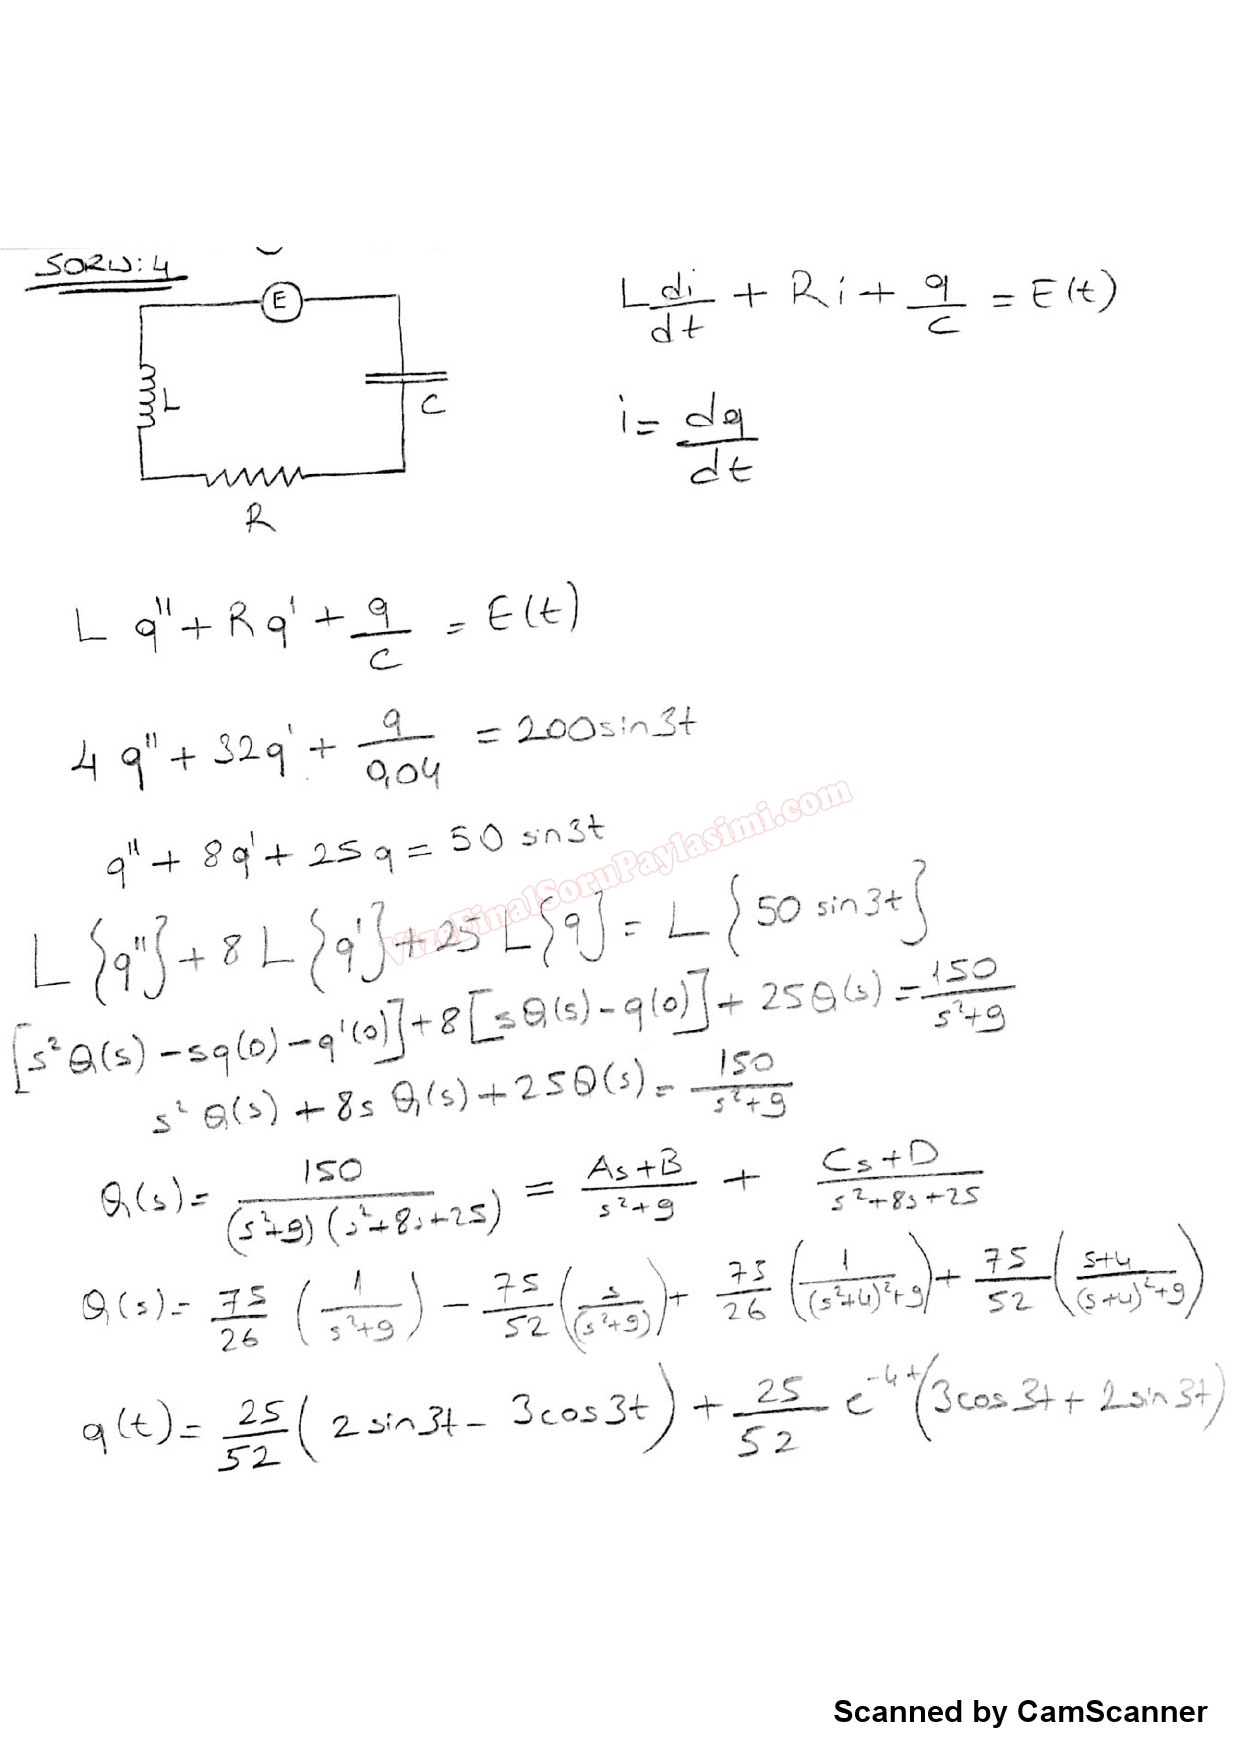 SORU:4
E
L
C
R
L di/dt + Ri + q/c = E(t)
i = dq/dt
L q'' + Rq' + q/c = E(t)
4 q'' + 32q' + q/0,04 = 200 sin3t
q'' + 8q' + 25q = 50 sin3t
L{q''} + 8 L{q'} + 25 L{q} = L{50 sin3t}
[s²Q(s) - sq(0) - q'(0)] + 8[sQ(s) - q(0)] + 25Q(s) = 150/(s²+9)
s²Q(s) + 8s Q(s) + 25Q(s) = 150/(s²+9)
Q(s) = 150/((s²+9)(s²+8s+25)) = (As+B)/(s²+9) + (Cs+D)/(s²+8s+25)
Q(s) = 75/26 (1/(s²+9)) - 75/52 (s/(s²+9)) + 75/26 (1/((s²+4)²+9)) + 75/52 ((s+4)/((s+4)²+9))
q(t) = 25/52 (2 sin3t - 3cos3t) + 25/52 e^-4t (3cos3t + 2sin3t)
VizeFinalSoruPaylasimi.com
Scanned by CamScanner